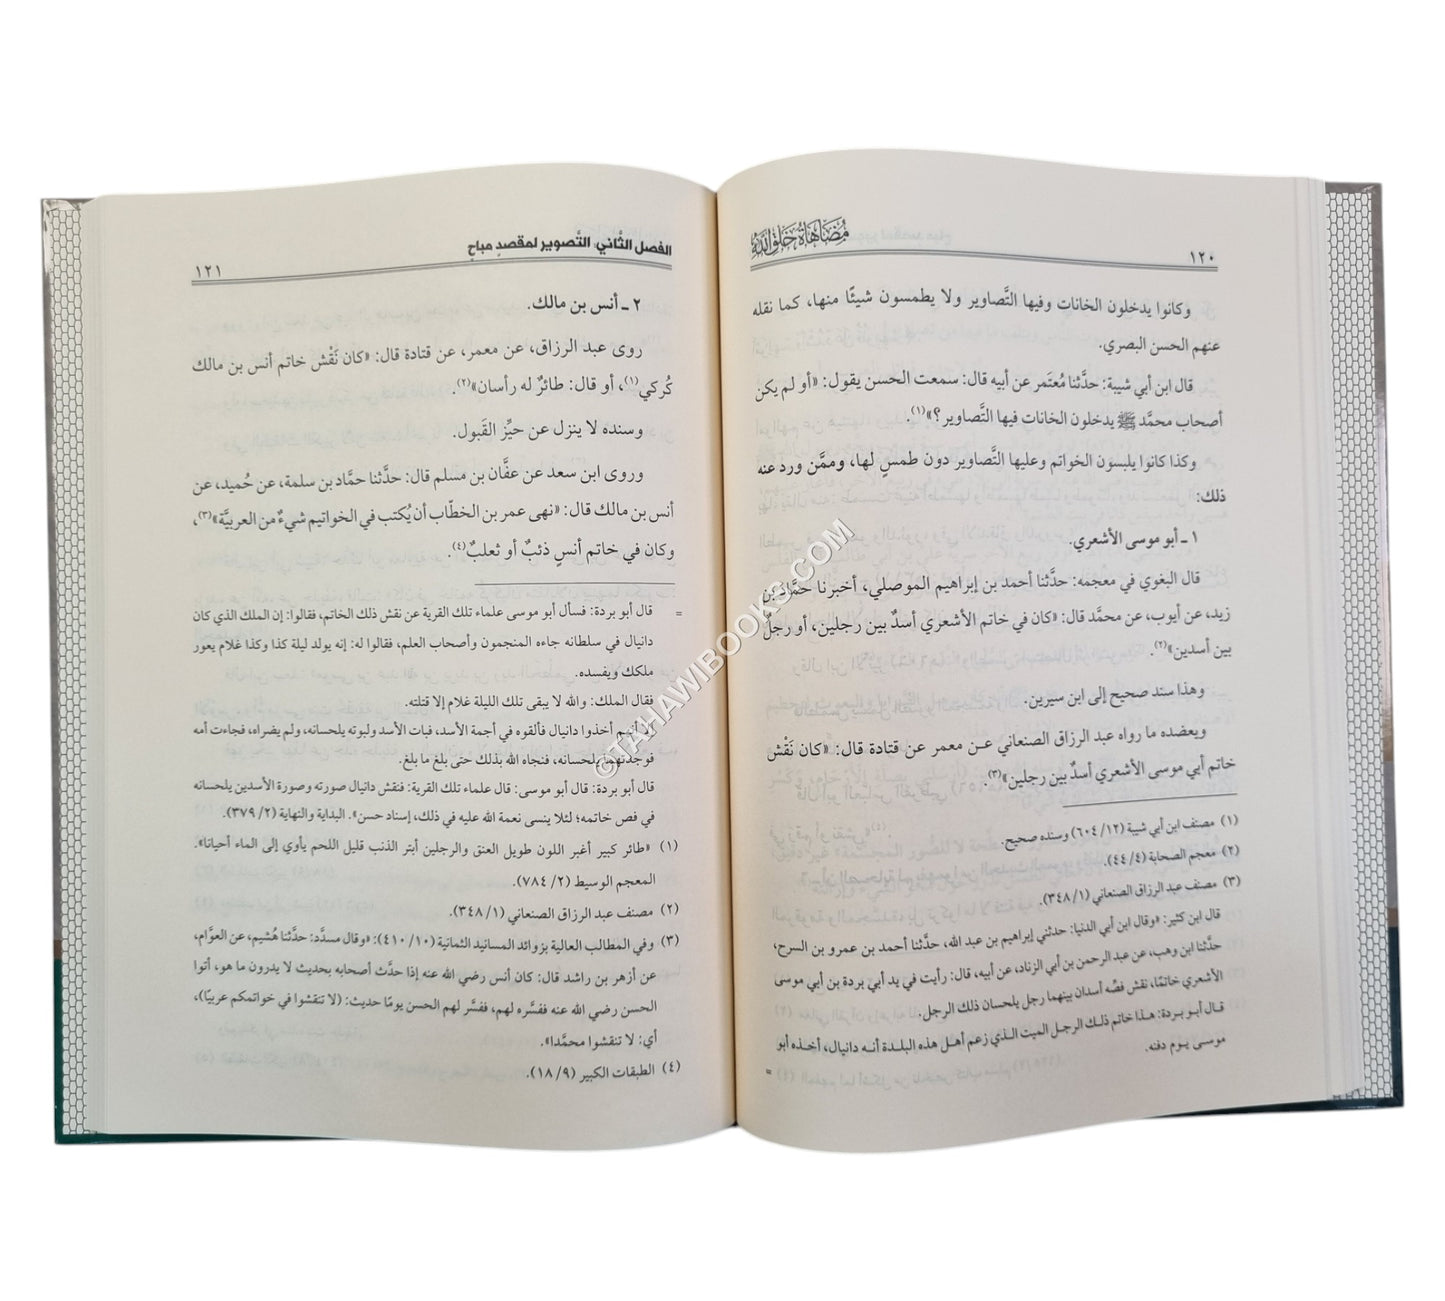 ١٢٠
مُضَاهَاةُ خَلْقِ اللَّهِ
وكانوا يدخلون الخانات وفيها التَّصاوير ولا يطمسون شيئًا منها، كما نقله
عنهم الحسن البصري.
قال ابن أبي شيبة: حدَّثنا مُعتَمر عن أبيه قال: سمعت الحسن يقول: «أو لم يكن
أصحاب محمَّد ﷺ يدخلون الخانات فيها التَّصاوير؟»(١).
وكذا كانوا يلبسون الخواتم وعليها التَّصاوير دون طمسٍ لها، وممَّن ورد عنه
ذلك:
١ ـ أبو موسى الأشعري.
قال البغوي في معجمه: حدَّثنا أحمد بن إبراهيم الموصلي، أخبرنا حمَّاد بن
زيد، عن أيوب، عن محمَّد قال: «كان في خاتم الأشعري أسدٌ بين رجلين، أو رجلٌ
بين أسدين»(٢).
وهذا سند صحيح إلى ابن سيرين.
ويعضده ما رواه عبد الرزاق الصنعاني عن معمر عن قتادة قال: «كان نَقْش
خاتم أبي موسى الأشعري أسدٌ بين رجلين»(٣).
(١) مصنف ابن أبي شيبة (١٢/ ٦٠٤) وسنده صحيح.
(٢) معجم الصحابة (٤/ ٤٤).
(٣) مصنف عبد الرزاق الصنعاني (١/ ٣٤٨).
قال ابن كثير: «وقال ابن أبي الدنيا: حدثني إبراهيم بن عبد الله، حدَّثنا أحمد بن عمرو بن السرح،
حدَّثنا ابن وهب، عن عبد الرحمن بن أبي الزناد، عن أبيه، قال: رأيت في يد أبي بردة بن أبي موسى
الأشعري خاتمًا، نقش فصُّه أسدان بينهما رجل يلحسان ذلك الرجل.
قال أبو بردة: هذا خاتم ذلك الرجل الميت الذي زعم أهل هذه البلدة أنه دانيال، أخذه أبو
موسى يوم دفنه.
=
الفصل الثَّاني: التَّصوير لمقصدٍ مباحٍ
١٢١
٢ ـ أنس بن مالك.
روى عبد الرزاق، عن معمر، عن قتادة قال: «كان نَقْش خاتم أنس بن مالك
كُركي(١)، أو قال: طائرٌ له رأسان»(٢).
وسنده لا ينزل عن حيِّز القَبول.
وروى ابن سعد عن عفَّان بن مسلم قال: حدَّثنا حمَّاد بن سلمة، عن حُميد، عن
أنس بن مالك قال: «نهى عمر بن الخطّاب أن يُكتب في الخواتيم شيءٌ من العربيَّة»(٣)،
وكان في خاتم أنسٍ ذئبٌ أو ثعلبٌ(٤).
= قال أبو بردة: فسأل أبو موسى علماء تلك القرية عن نقش ذلك الخاتم، فقالوا: إن الملك الذي كان
دانيال في سلطانه جاءه المنجمون وأصحاب العلم، فقالوا له: إنه يولد ليلة كذا وكذا غلام يعور
ملكك ويفسده.
فقال الملك: والله لا يبقى تلك الليلة غلام إلا قتلته.
أنهم أخذوا دانيال فألقوه في أجمة الأسد، فبات الأسد ولبوته يلحسانه، ولم يضراه، فجاءت أمه
فوجدتهما يلحسانه، فنجاه الله بذلك حتى بلغ ما بلغ.
قال أبو بردة: قال أبو موسى: قال علماء تلك القرية: فنقش دانيال صورته وصورة الأسدين يلحسانه
في فص خاتمه؛ لئلا ينسى نعمة الله عليه في ذلك، إسناد حسن». البداية والنهاية (٢/ ٣٧٩).
(١) «طائر كبير أغبر اللون طويل العنق والرجلين أبتر الذنب قليل اللحم يأوي إلى الماء أحيانا».
المعجم الوسيط (٢/ ٧٨٤).
(٢) مصنف عبد الرزاق الصنعاني (١/ ٣٤٨).
(٣) وفي المطالب العالية بزوائد المسانيد الثمانية (١٠/ ٤١٠): «وقال مسدَّد: حدَّثنا هُشيم، عن العوَّام،
عن أزهر بن راشد قال: كان أنس رضي الله عنه إذا حدَّث أصحابه بحديث لا يدرون ما هو، أتوا
الحسن رضي الله عنه ففسَّره لهم، ففسَّر لهم الحسن يومًا حديث: (لا تنقشوا في خواتمكم عربيًا)،
أي: لا تنقشوا محمَّدا».
(٤) الطبقات الكبير (٩/ ١٨).
©TAHAWIBOOKS.COM